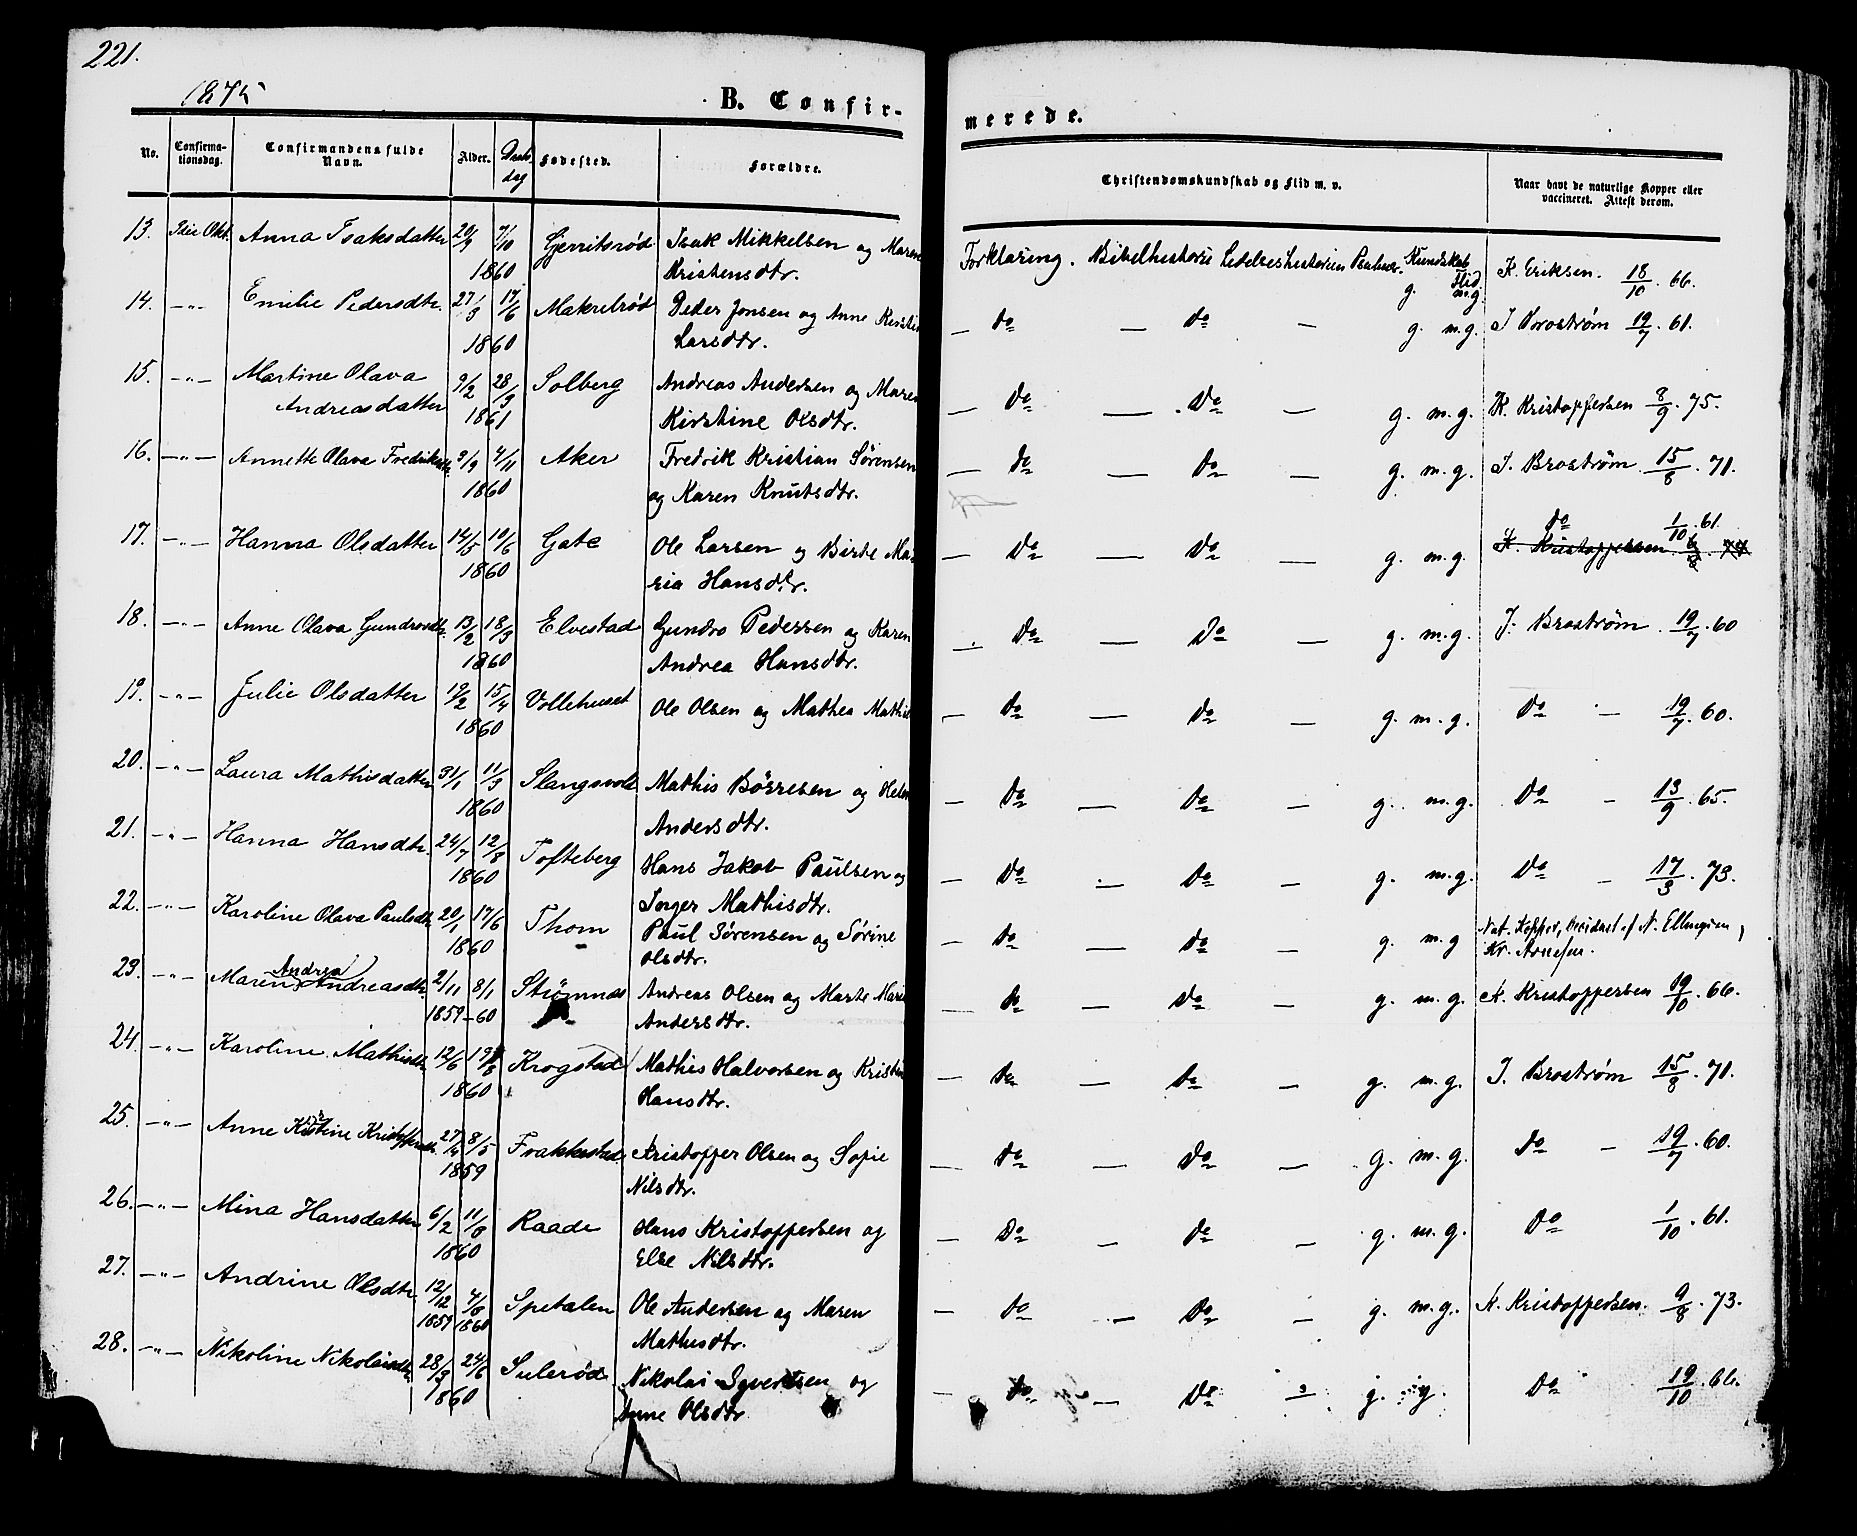 221.
1875
B. Confir-
merede.
No.
Confirma-
tionsdag.
Confirmandens fulde
Navn.
Alder.
Daabs
dag
Fødested.
Forældre.
Christendomskundskab og Flid m. v.
Naar havt de naturlige Kopper eller
vaccineret. Attest derom.
13. Okt. Anna Isaksdatter 20/9 7/10 Gjerritsrød Isak Mikkelsen og Maren Forklaring. Bibelhistorie Lidelseshistorien Psalmer. Kundskab Flid K. Eriksen. 18/10. 66.
1860 Kristensdtr. g. m.g.
14. -"- Emilie Pedersdtr. 27/3 17/6 Makrelrød Peder Jonsen og Anne Kirstin - do - do - g. m.g. J Brostrøm 19/7. 61.
1860 Larsdtr.
15. -"- Martine Olava 9/2 28/3 Solberg Andreas Andersen og Maren - do - do - g. m.g. K. Kristoffersen 8/9. 75.
Andreasdatter 1861 Kirstine Olsdtr.
16. -"- Annette Olava Fredriksdtr. 9/9 4/11 Aker Fredrik Kristian Sørensen - do - do - g. m.g. J. Brostrøm 15/8. 71.
1860 og Karen Knutsdtr.
17. -"- Hanna Olsdatter 14/5 10/6 Gate Ole Larsen og Birte Ma- - do - do - g. m.g. do 1/10. 61.
1860 ria Hansdtr. K. Kristoffersen
18. -"- Anne Olava Gundrosdtr. 13/2 18/3 Elvestad Gundro Pedersen og Karen - do - do - g. m.g. J. Brostrøm 19/7. 60
1860 Andrea Hansdtr.
19. -"- Julie Olsdatter 19/2 15/4 Vollehuset Ole Olsen og Mathea Mathis - do - do - g. m.g. do - 19/7. 60.
1860
20. -"- Laura Mathisdatter 31/1 11/3 Slangsvold Mathis Börresen og Helene - do - do - g. m.g. do - 13/9. 65.
1860 Andersdtr.
21. -"- Hanna Hansdtr. 24/7 12/8 Tofteberg Hans Jakob Paulsen og - do - do - g. m.g. do - 17/3. 73.
1860 Inger Mathisdtr.
22. -"- Karoline Olava Paulsdtr. 20/1 17/6 Thom Paul Sörensen og Sörine - do - do - g. m.g Nat. Kopper, bevidnet af N. Ellingsen,
1860 Olsdtr. Kr. Arnesen.
23. -"- Maren Andrea Andreasdtr. 2/11 8/1 Strømnæs Andreas Olsen og Marte Marie - do - do - g. m.g. K. Kristoffersen 19/10. 66.
1859-60 Andersdtr.
24. -"- Karoline Mathisdtr. 12/6 19/8 Krogstad Mathis Halvorsen og Kristine - do - do - g. m.g. J. Brostrøm 15/8. 71.
1860 Hansdtr.
25. -"- Anne Kirstine Kristoffersdtr. 27/4 8/5 Frakkestad Kristoffer Olsen og Sofie - do - do - g. m.g. do - 19/7. 60.
1859 Nilsdtr.
26. -"- Mina Hansdatter 6/2 11/8 Raade Hans Kristoffersen og - do - do - g. m.g. do 1/10. 61.
1860 Else Nilsdtr.
27. -"- Andrine Olsdtr. 12/12 4/8 Spetalen Ole Andersen og Maren - do - do - g. m.g. K. Kristoffersen. 9/8. 73.
1859 1860 Mathisdtr.
28. -"- Nikoline Nikolaisdtr. 28/3 24/6 Sulerød Nikolai Syvertsen og - do - do - g. g. do 19/10. 66.
1860 Anne Olsdtr